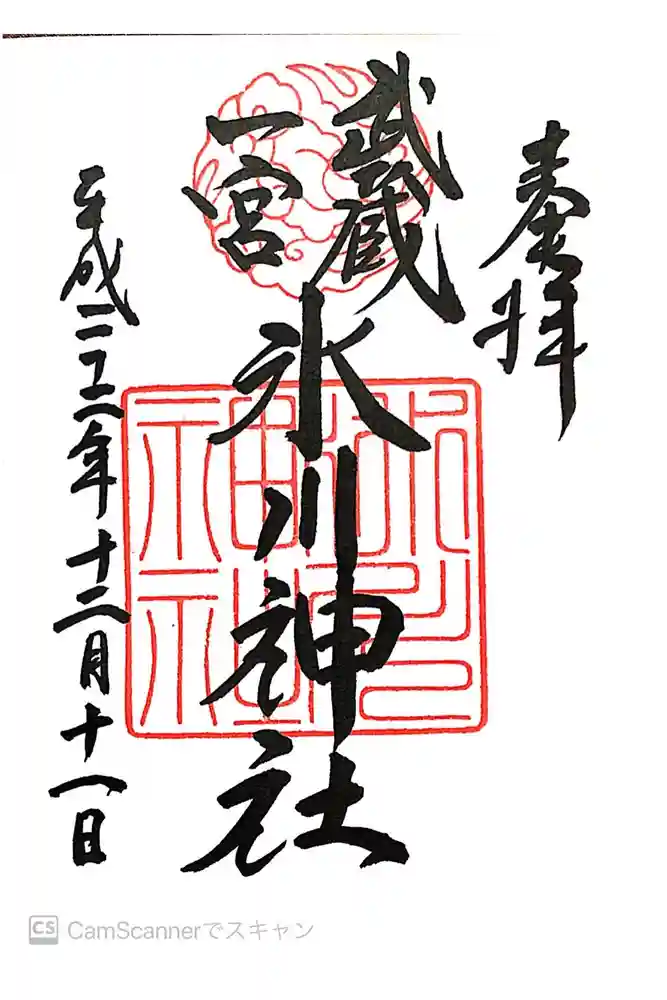 奉拝
武蔵
一宮
氷川神社
平成二十二年十二月十八日
CS CamScannerでスキャン